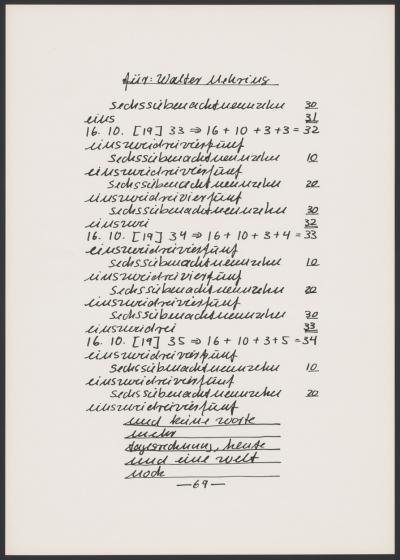 für: Walter Mehring
sechssiebenachtneunzehn 30
eins 31
16. 10. [19] 33 ⇒ 16 + 10 + 3 + 3 = 32
einszweidreivierfünf
sechssiebenachtneunzehn 10
einszweidreivierfünf
sechssiebenachtneunzehn 20
einszweidreivierfünf
sechssiebenachtneunzehn 30
einszwei 32
16. 10. [19] 34 ⇒ 16 + 10 + 3 + 4 = 33
einszweidreivierfünf
sechssiebenachtneunzehn 10
einszweidreivierfünf
sechssiebenachtneunzehn 20
einszweidreivierfünf
sechssiebenachtneunzehn 30
einszweidrei 33
16. 10. [19] 35 ⇒ 16 + 10 + 3 + 5 = 34
einszweidreivierfünf
sechssiebenachtneunzehn 10
einszweidreivierfünf
sechssiebenachtneunzehn 20
einszweidreivierfünf
und keine worte
mehr
tagesrechnung, heute
und eine welt
noch
—69—